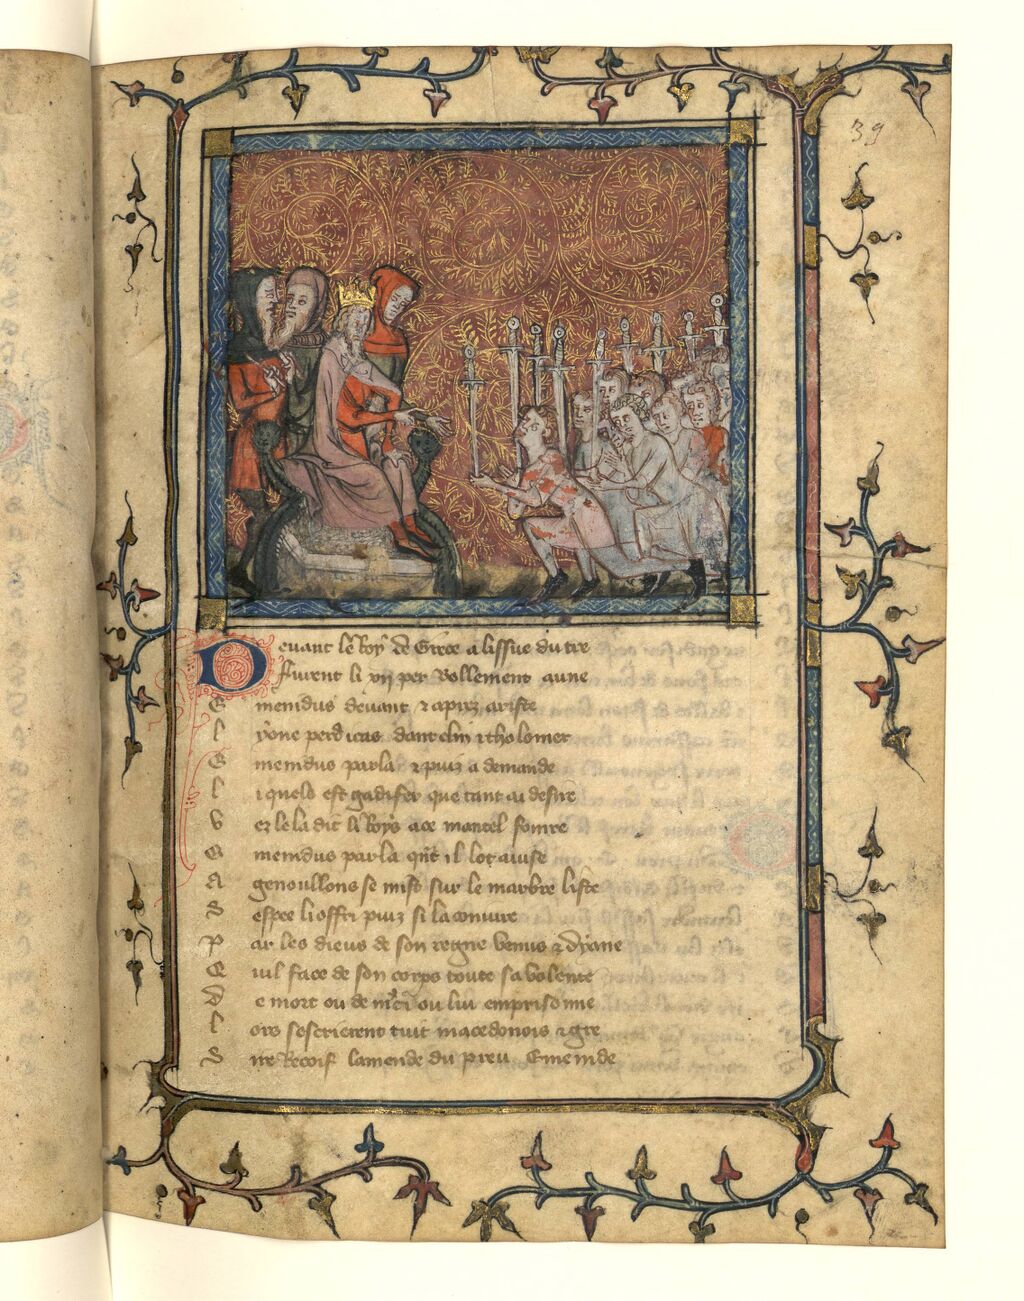 39
Devant le Roy de Grece a lissue du tre
Furent li xij per bellement aune
Emenidus devant & apruiz ariste
Lyone perdicas danclin & tholomer
Emenidus parla & puiz a demande
Liquels est gadifer que tant ai desire
Vez le la dit li Roys a ce mantel fourre
Emenidus parla qnt il lot avise
Agenoullons se mist sur le marbre liste
Sespee li offri puiz si la conuire
Par les dieus de son regne venus & dyane
Quil face de son corps toute sa volente
De mort ou de mci ou lui emprisonne
Lors sescrierent tuit macedonois & gre
Sire Recoif lamende du preu Emenide